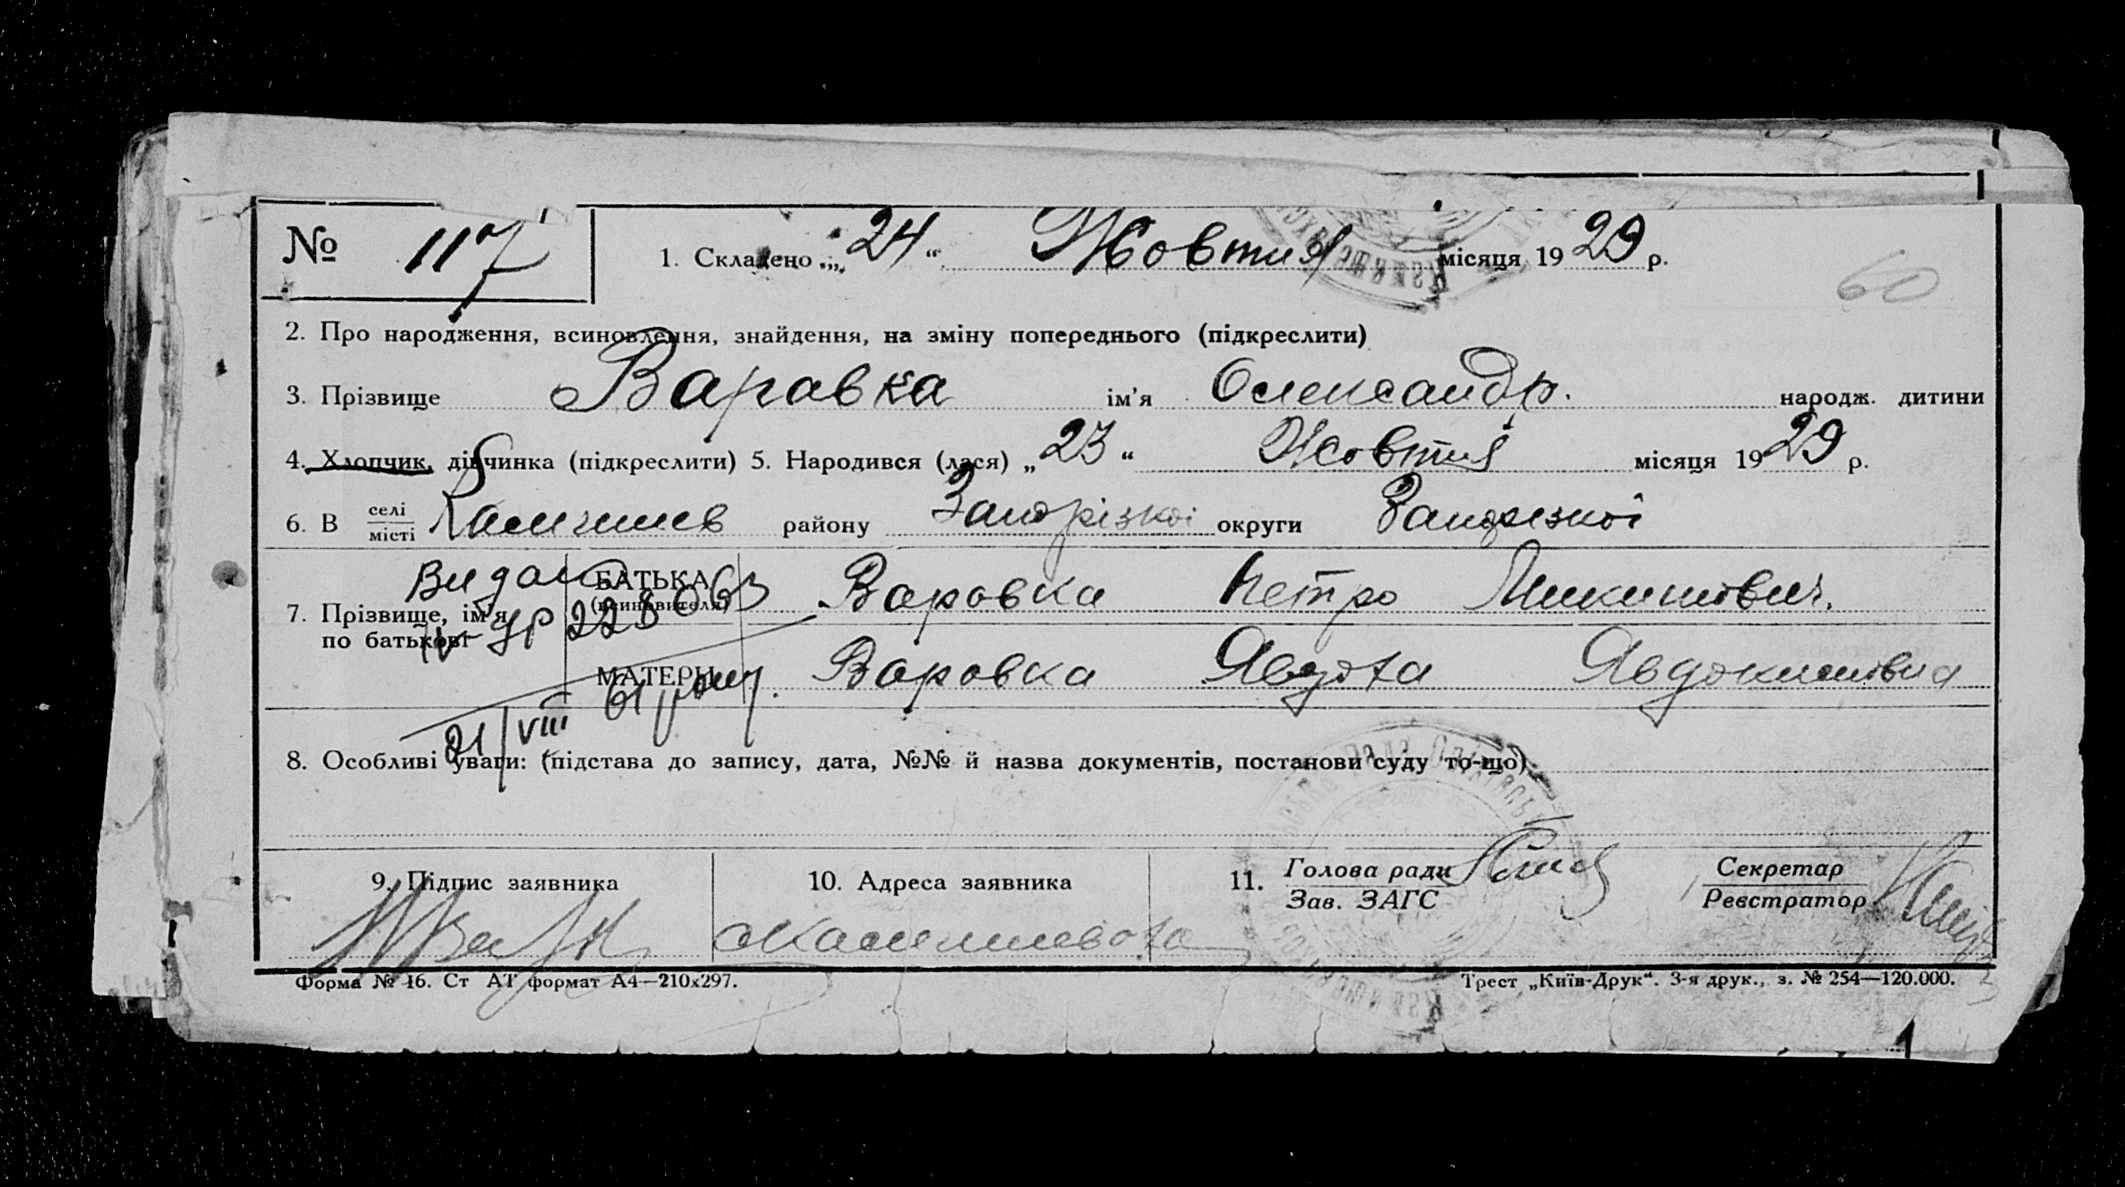 № 117
1. Складено „24“ Жовтня місяця 1929 р.
60
2. Про народження, всиновлення, знайдення, на зміну попереднього (підкреслити)
3. Прізвище Варавка ім'я Олександр. народж. дитини
4. Хлопчик, дівчинка (підкреслити) 5. Народився (лася) „23“ Жовтня місяця 1929 р.
6. В селі місті району Запорізкої округи Запорізкої
Видано
7. Прізвище, ім'я по батькові
БАТЬКА (всиновителя) Варовка Петро Микитович.
228063
МАТЕРИ Варовка Явдоха Явдокимовна
21/VIII 61
8. Особливі уваги: (підстава до запису, дата, №№ й назва документів, постанови суду то-що)
9. Підпис заявника
10. Адреса заявника
11. Голова ради Зав. ЗАГС
Секретар Реєстратор
Форма № 16. Ст АТ формат А4—210х297.
Трест „Київ-Друк“. 3-я друк., з. № 254—120.000.